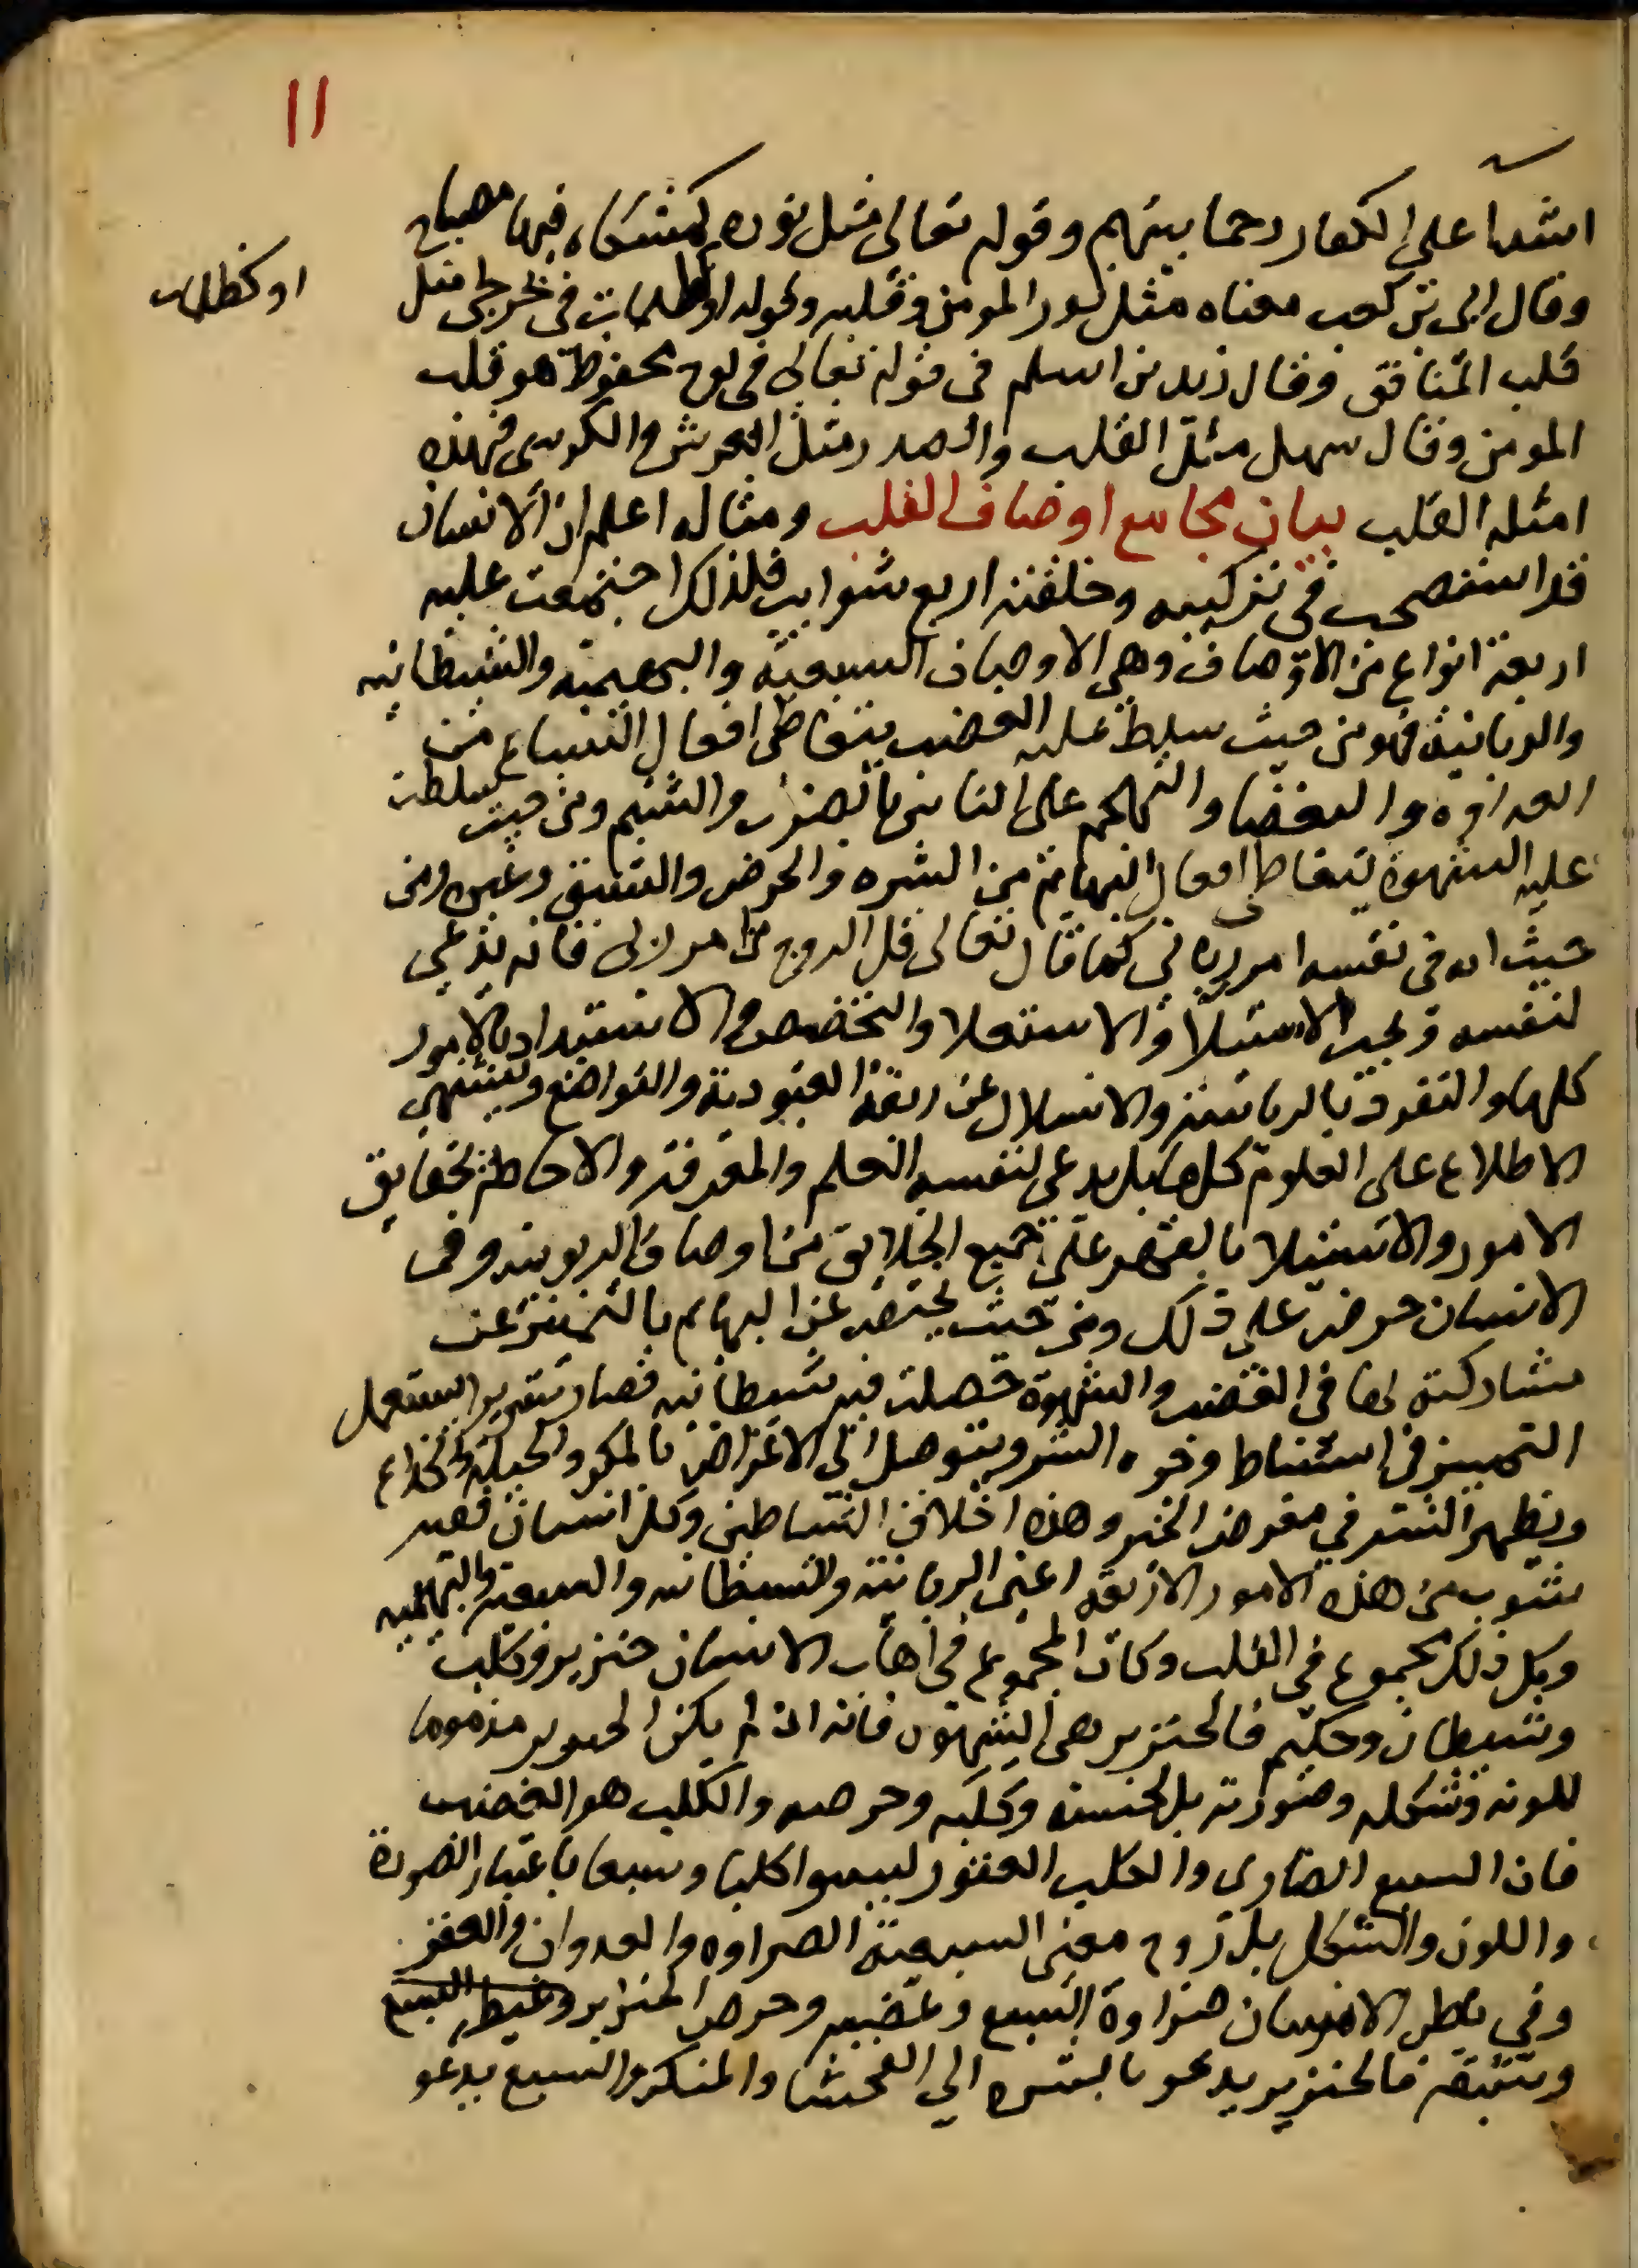 ١١
اشدا على الكفار رحما بينهم وقوله تعالى مثل نوره كمشكاه فيها مصباح
وقال ابى بن كعب معناه مثل نور المومن وقلبه وقوله او كظلمات فى بحر لجى مثل
او كظلمات
قلب المنافق وقال زيد بن اسلم فى قوله تعالى فى لوح محفوظ هو قلب
المومن وقال سهل مثل القلب والصدر مثل العرش والكرسى فهذه
امثله القلب بيان مجامع اوصاف القلب ومثاله اعلم ان الانسان
قد استصحب فى تركيبه وخلقته اربع شوايب فلذلك اجتمعت عليه
اربعة انواع من الاوصاف وهى الاوصاف السبعية والبهيمية والشيطانيه
والربانية فهو من حيث سلط عليه الغضب يتعاطى افعال السباع من
العداوه والبغضا والتهجم على الناس بالضرب والشتم ومن حيث سلطت
عليه الشهوة يتعاطى افعال البهايم من الشره والحرص والشبق وغيره ومن
حيث انه فى نفسه امر ربانى كما قال تعالى قل الروح من امر ربى فانه يدعى
لنفسه الربوبية ويحب الاستيلا والاستعلا والتخصص والاستبداد بالامور
كلها والتفرد بالرياسة والانسلال عن ربقة العبودية والتواضع ويشتهى
الاطلاع على العلوم كلها بل يدعى لنفسه العلم والمعرفة والاحاطة بحقايق
الامور والاستيلا بالقهر على جميع الخلايق من اوصاف الربوبيه وفى
الانسان حرص على ذلك ومن حيث يختص عن البهايم بالتمييز عن
مشاركته لها فى الغضب والشهوة حصلت فيه شيطانيه فصار شريرا يستعمل
التمييز فى استنباط وجوه الشر ويتوصل الى الاغراض بالمكر والحيلة والخداع
ويظهر الشر فى معرض الخير وهذه اخلاق الشياطين وكل انسان ففيه
شوب من هذه الامور الاربعة اعنى الربانية والشيطانيه والسبعية والبهيميه
وكل ذلك مجموع فى القلب وكان المجموع فى اهاب الانسان خنزير وكلب
وشيطان وحكيم فالخنزير هى الشهوه فانه ان لم يكن الخنزير مذموما
للونه وشكله وصورته بل لجشعه وكلبه وحرصه والكلب هو الغضب
فان السبع الضارى والكلب العقور ليسوا كلبا وسبعا باعتبار الصورة
واللون والشكل بل روح معنى السبعية الضراوه والعدوان والعقر
وفى باطن الانسان ضراوة السبع وغضبه وحرص الخنزير وغيظ السبع
وشبقه فالخنزير يدعو بالشره الى الفحشا والمنكر والسبع يدعو